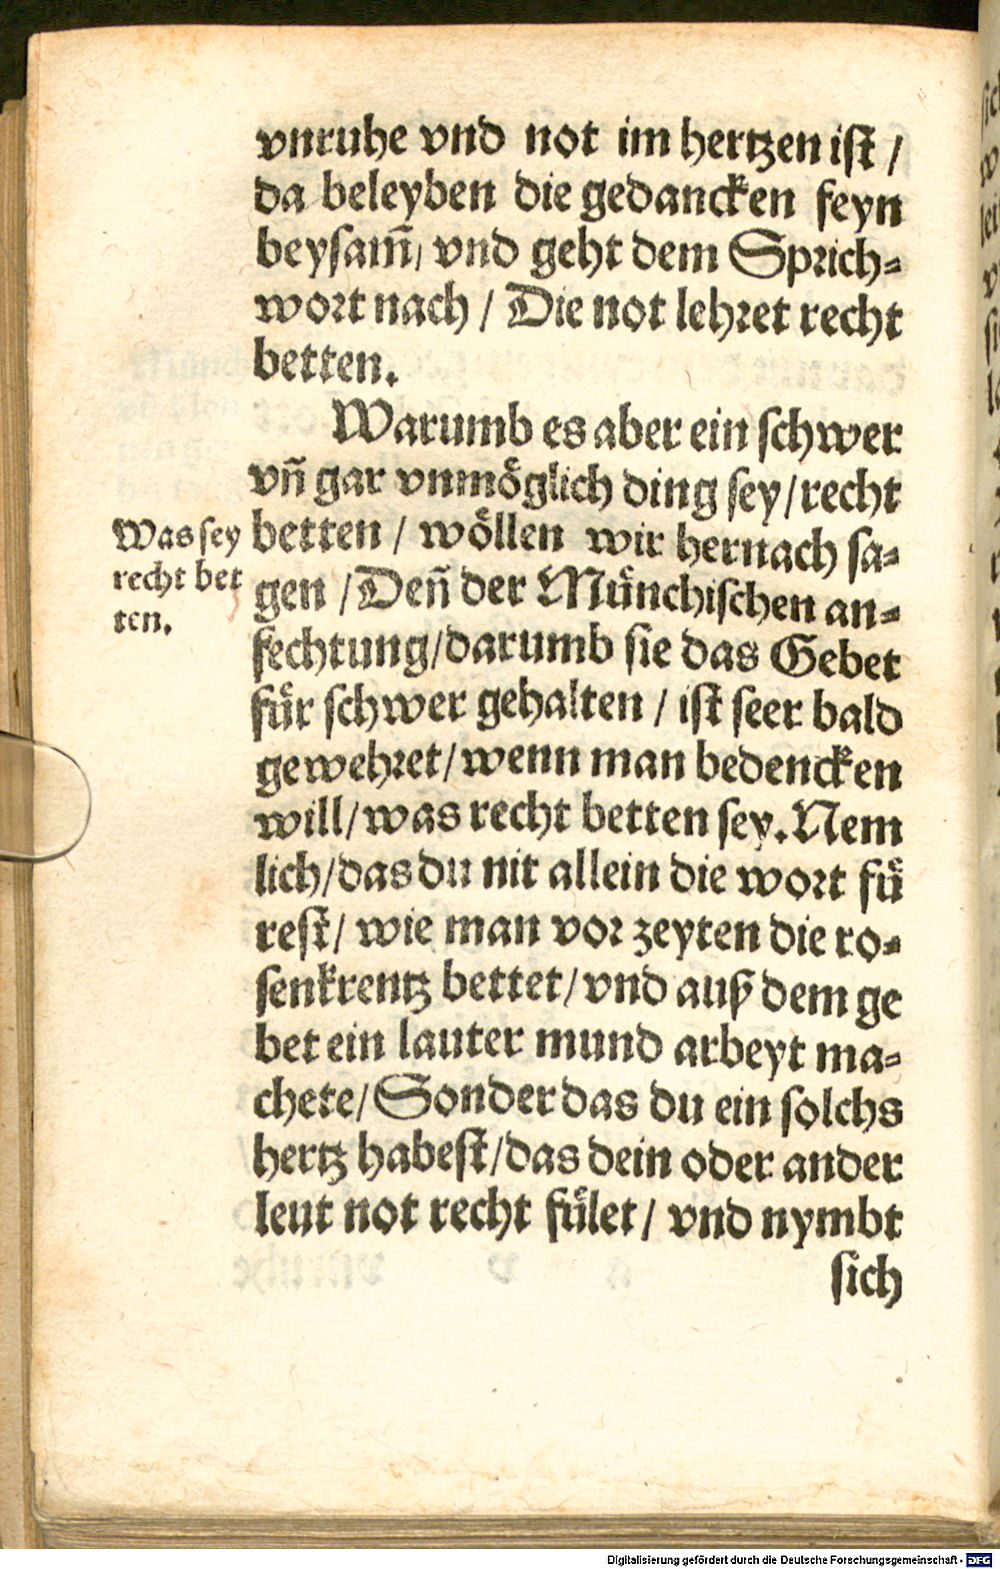 vnruhe vnd not im hertzen ist /
da beleyben die gedancken feyn
beysam̃ / vnd geht dem Sprich⸗
wort nach / Die not lehret recht
betten.
Warumb es aber ein schwer
vñ gar vnmöglich ding sey / recht
betten / wöllen wir hernach sa⸗
gen / Deñ der Münchischen an⸗
fechtung / darumb sie das Gebet
für schwer gehalten / ist seer bald
gewehret / wenn man bedencken
will / was recht betten sey. Nem
lich / das du nit allein die wort fü
rest / wie man vor zeyten die ro⸗
senkrentz bettet / vnd auß dem ge
bet ein lauter mund arbeyt ma⸗
chete / Sonder das du ein solchs
hertz habest / das dein oder ander
leut not recht fület / vnd nymbt
sich
Was sey
recht bet
ten.
Digitalisierung gefördert durch die Deutsche Forschungsgemeinschaft - DFG